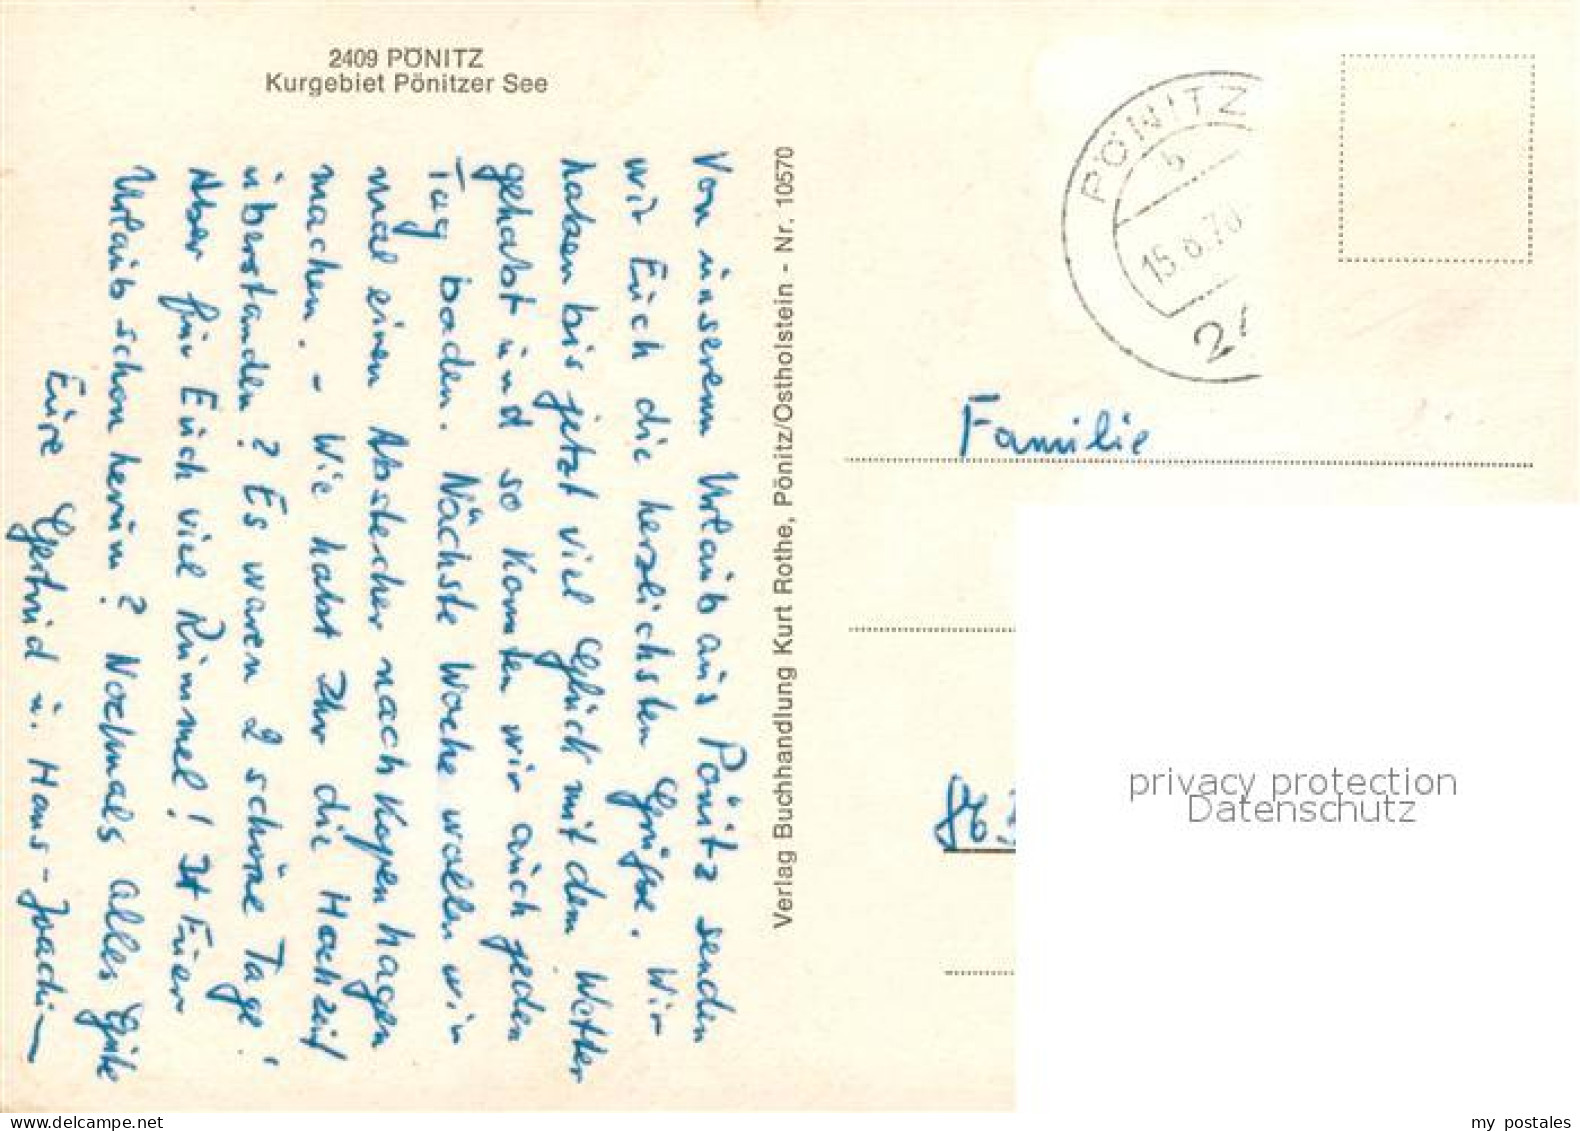 2409 PÖNITZ
Kurgebiet Pönitzer See
Von unserem Urlaub aus Pönitz senden
wir Euch die herzlichsten Grüße. Wir
haben bis jetzt viel Glück mit dem Wetter
gehabt und so konnten wir auch jeden
Tag baden. Nächste Woche wollen wir
mal einen Abstecher nach Kopenhagen
machen. - Wie habt Ihr die Hochzeit
überstanden? Es waren 2 schöne Tage!
Aber für Euch viel Rummel! Ist Euer
Urlaub schon herum? Nochmals alles Gute
Eure Gertrud u. Hans-Joachim
Verlag Buchhandlung Kurt Rothe, Pönitz/Ostholstein - Nr. 10570
PÖNITZ
b
15.8.70
24
Familie
privacy protection
Datenschutz
my postales